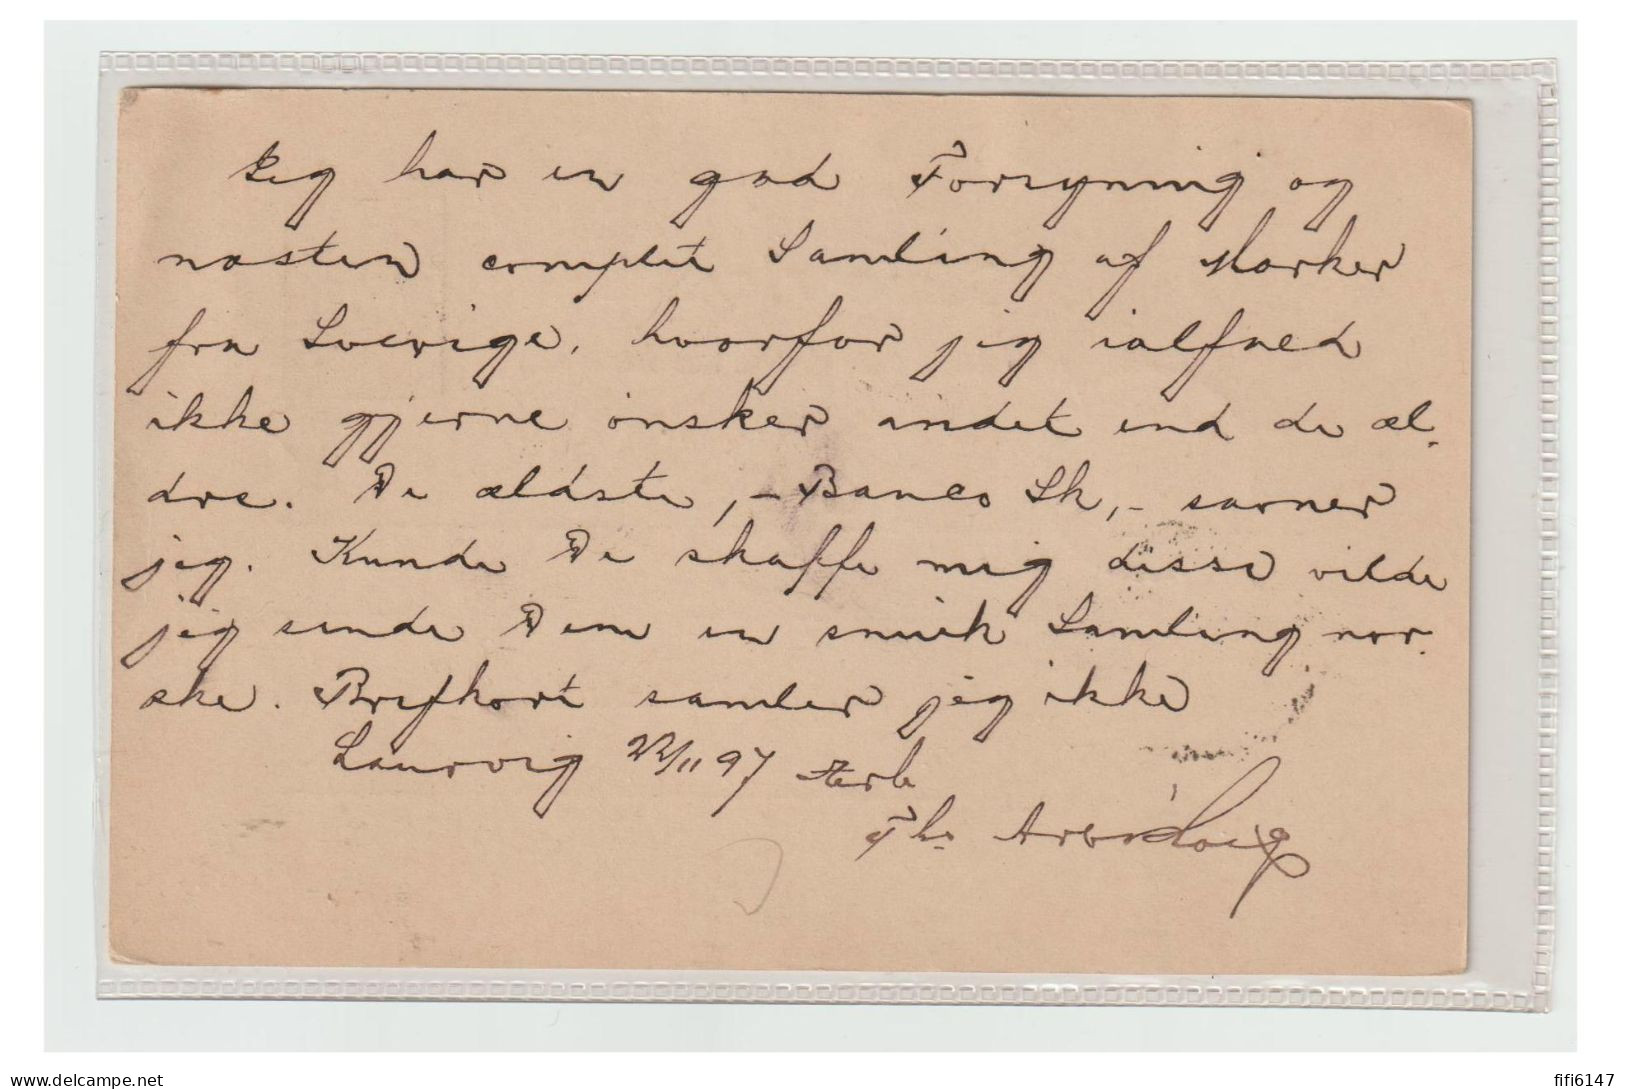 Jeg har en god Forsyning og
næsten complet Samling af Mærker
fra Sverige, hvorfor jeg ialfald
ikke gjerne ønsker andet end de æl-
dre. De ældste, - Banco Sk, - savner
jeg. Kunde De skaffe mig disse vilde
jeg sende Dem en smuk Samling nor-
ske. Brefkort samler jeg ikke
Laurvig 22/11 97 Ærb
Th.
delcampe.net
fifi6147